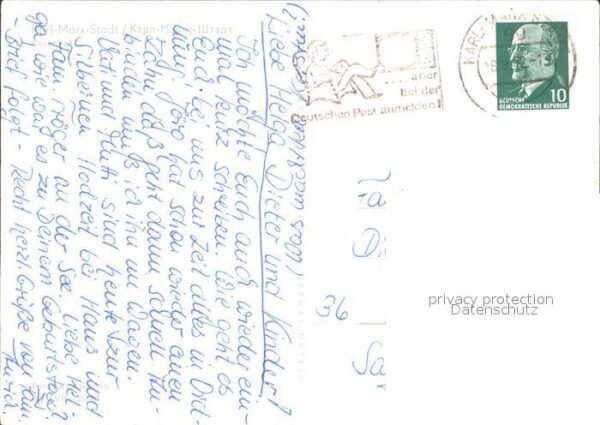 Karl-Marx-Stadt / Карл-Маркс-Штадт
Liebe Helga, Dieter und Kinder!
Ich möchte Euch auch wieder ein-
mal kurz schreiben. Wie geht es
Euch? Bei uns zur Zeit alles in Ord-
nung. Jörg hat schon wieder einen
Zahn, das geht dann schnell. An-
binden muß ich ihn im Wagen.
Vati und Mutti sind heute zur
Silbernen Hochzeit bei Hans und
Fam. Träger an der See. Liebe Hel-
ga, wie war es zu Deinem Geburtstag?
Brief folgt - Recht herzl. Grüße von Fam.
KARL-MARX-
...aber
bei der
Deutschen Post anmelden!
DEUTSCHE
DEMOKRATISCHE REPUBLIK
10
Fa
Di
36
Sa
privacy protection
Datenschutz